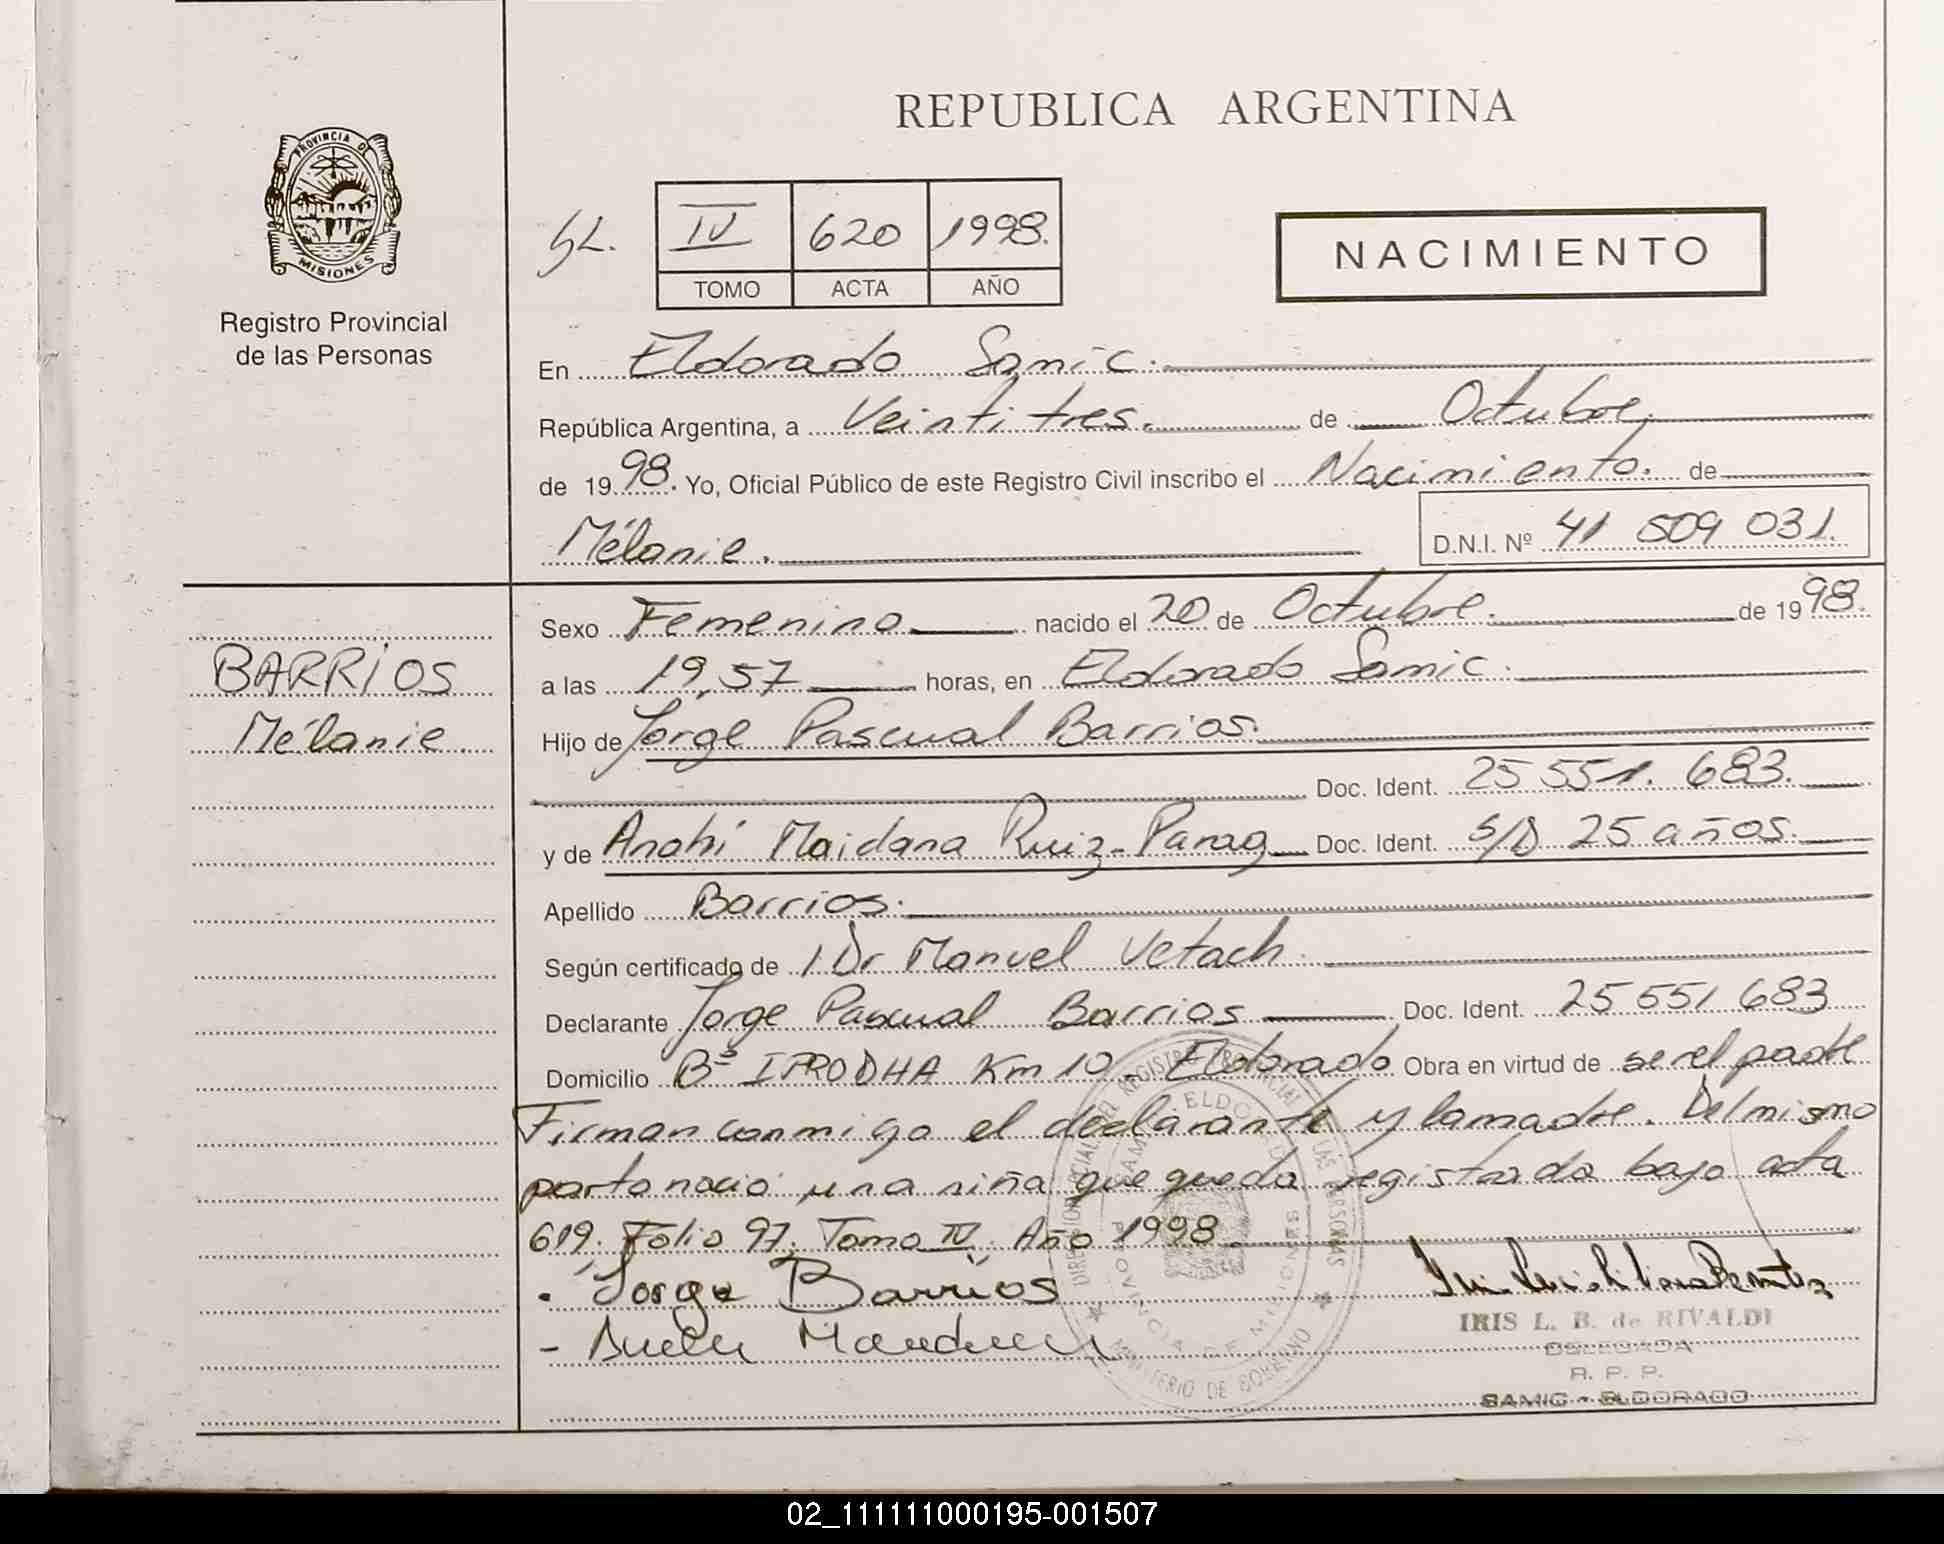 REPUBLICA ARGENTINA
PROVINCIA DE
MISIONES
Registro Provincial
de las Personas
IV 620 1998.
TOMO ACTA AÑO
NACIMIENTO
En Eldorado Samic.
República Argentina, a Veintitres. de Octubre.
de 1998. Yo, Oficial Público de este Registro Civil inscribo el Nacimiento. de
Mélanie. D.N.I. Nº 41 509 031.
BARRIOS
Mélanie
Sexo Femenino nacido el 20 de Octubre. de 1998.
a las 19,57 horas, en Eldorado Samic.
Hijo de Jorge Pascual Barrios.
Doc. Ident. 25 551. 683.
y de Anahi Maidana Ruiz-Parag Doc. Ident. S/D 25 años.
Apellido Barrios.
Según certificado de Dr Manuel Vetach.
Declarante Jorge Pascual Barrios Doc. Ident. 25 551 683
Domicilio Bº IPRODHA Km 10 - Eldorado Obra en virtud de ser el padre
Firman conmigo el declarante y la madre. Del mismo
parto nació una niña que queda registrada bajo acta
619. Folio 97. Tomo IV. Año 1998
. Jorge Barrios
IRIS L. B. de RIVALDI
DELEGADA
R. P. P.
SAMIC - ELDORADO
02_111111000195-001507